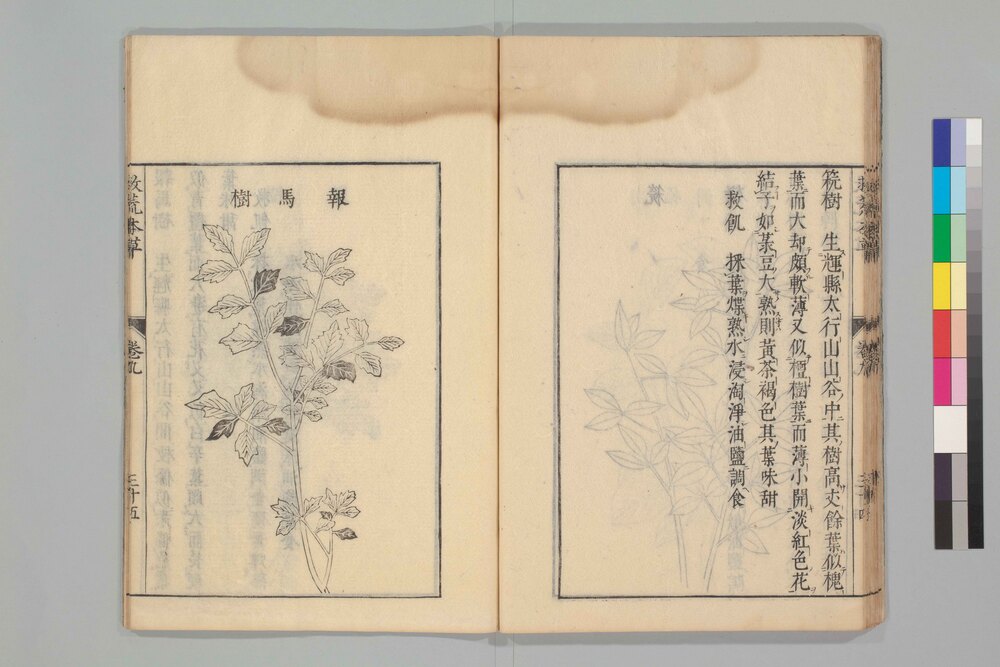 筦樹 生輝縣太行山山谷中其樹高丈餘葉似槐
葉而大却頗軟薄又似檀樹葉而薄小開淡紅色花
結子如菉豆大熟則黃茶褐色其葉味甜
救飢 採葉煠熟水浸淘淨油鹽調食
報馬樹
救荒本草
卷九
三十五